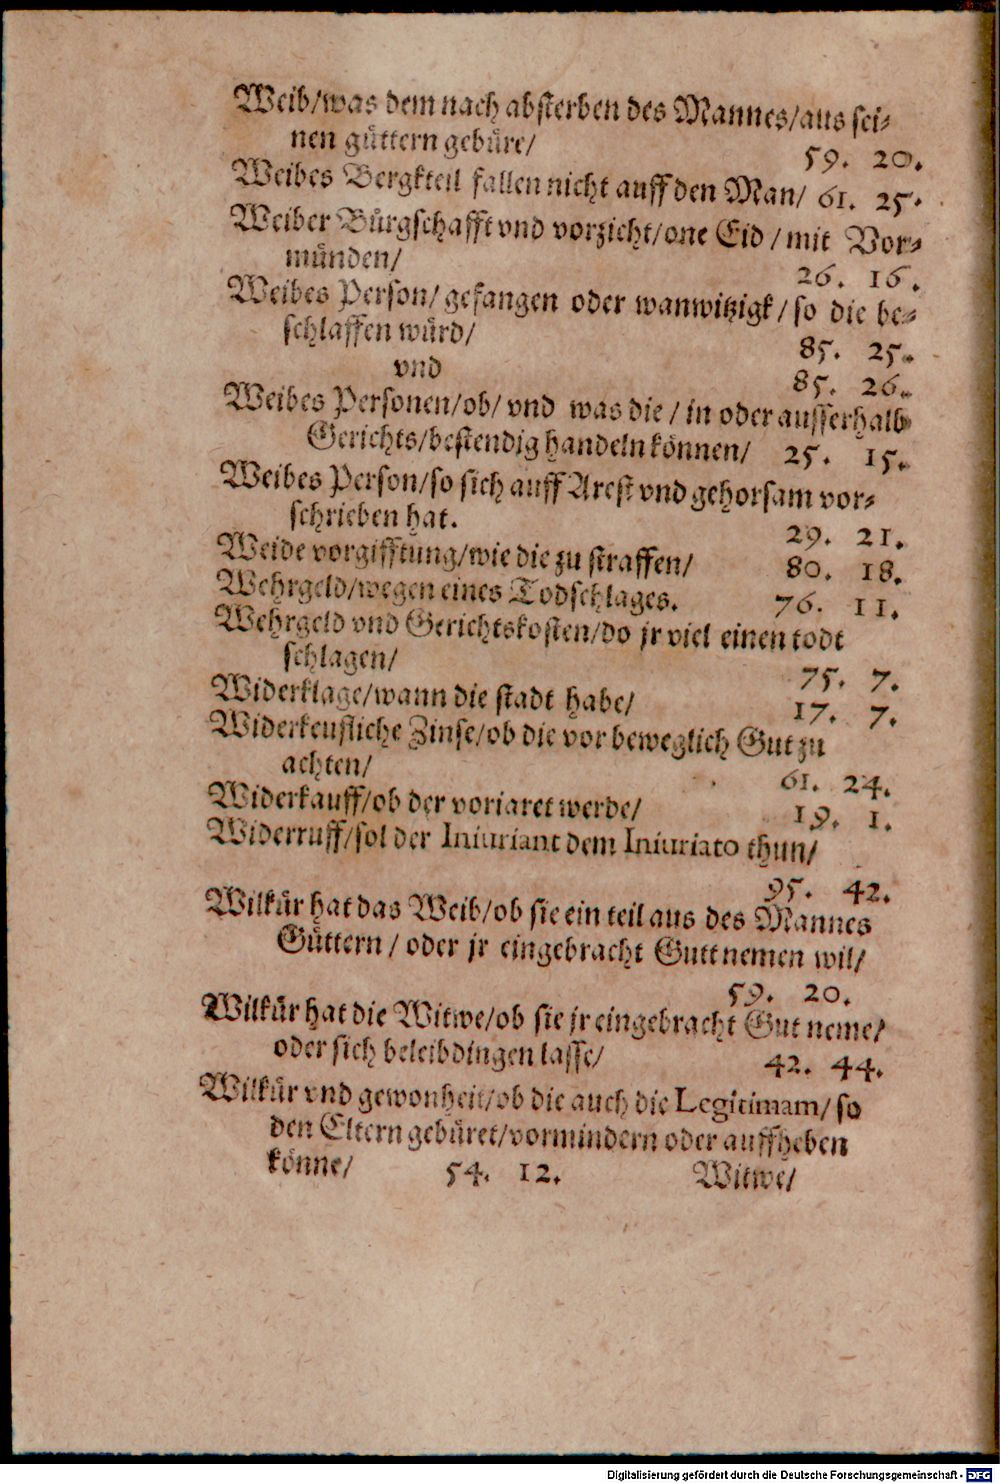 Weib/was dem nach absterben des Mannes/aus sei⸗
nen guͤttern gebuͤre/ 59. 20.
Weibes Bergkteil fallen nicht auff den Man/ 61. 25.
Weiber Buͤrgschafft vnd vorzicht/one Eid / mit Vor⸗
muͤnden/ 26. 16.
Weibes Person/ gefangen oder wanwitzigk / so die be⸗
schlaffen wuͤrd/ 85. 25.
vnd 85. 26.
Weibes Personen/ob/ vnd was die / in oder ausserhalb
Gerichts/bestendig handeln koͤnnen/ 25. 15.
Weibes Person/so sich auff Arest vnd gehorsam vor⸗
schrieben hat. 29. 21.
Weide vorgifftung/wie die zu straffen/ 80. 18.
Wehrgeld/wegen eines Todschlages. 76. 11.
Wehrgeld vnd Gerichtskosten/do jr viel einen todt
schlagen/ 75. 7.
Widerklage/wann die stadt habe/ 17. 7.
Widerkeufliche Zinse/ob die vor beweglich Gut zu
achten/ 61. 24.
Widerkauff/ob der voriaret werde/ 19. 1.
Widerruff/sol der Iniuriant dem Iniuriato thun/
95. 42.
Wilkuͤr hat das Weib/ob sie ein teil aus des Mannes
Guͤttern / oder jr eingebracht Gutt nemen wil/
59. 20.
Wilkuͤr hat die Witwe/ob sie jr eingebracht Gut neme/
oder sich beleibdingen lasse/ 42. 44.
Wilkuͤr vnd gewonheit/ob die auch die Legitimam/ so
den Eltern gebuͤret/vormindern oder auffheben
koͤnne/ 54. 12. Witwe/
Digitalisierung gefördert durch die Deutsche Forschungsgemeinschaft - DFG